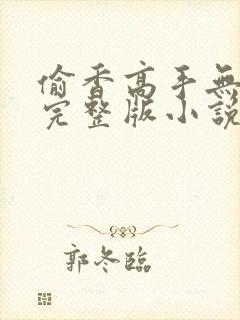 偷香高手無
完整版小說
郭冬臨